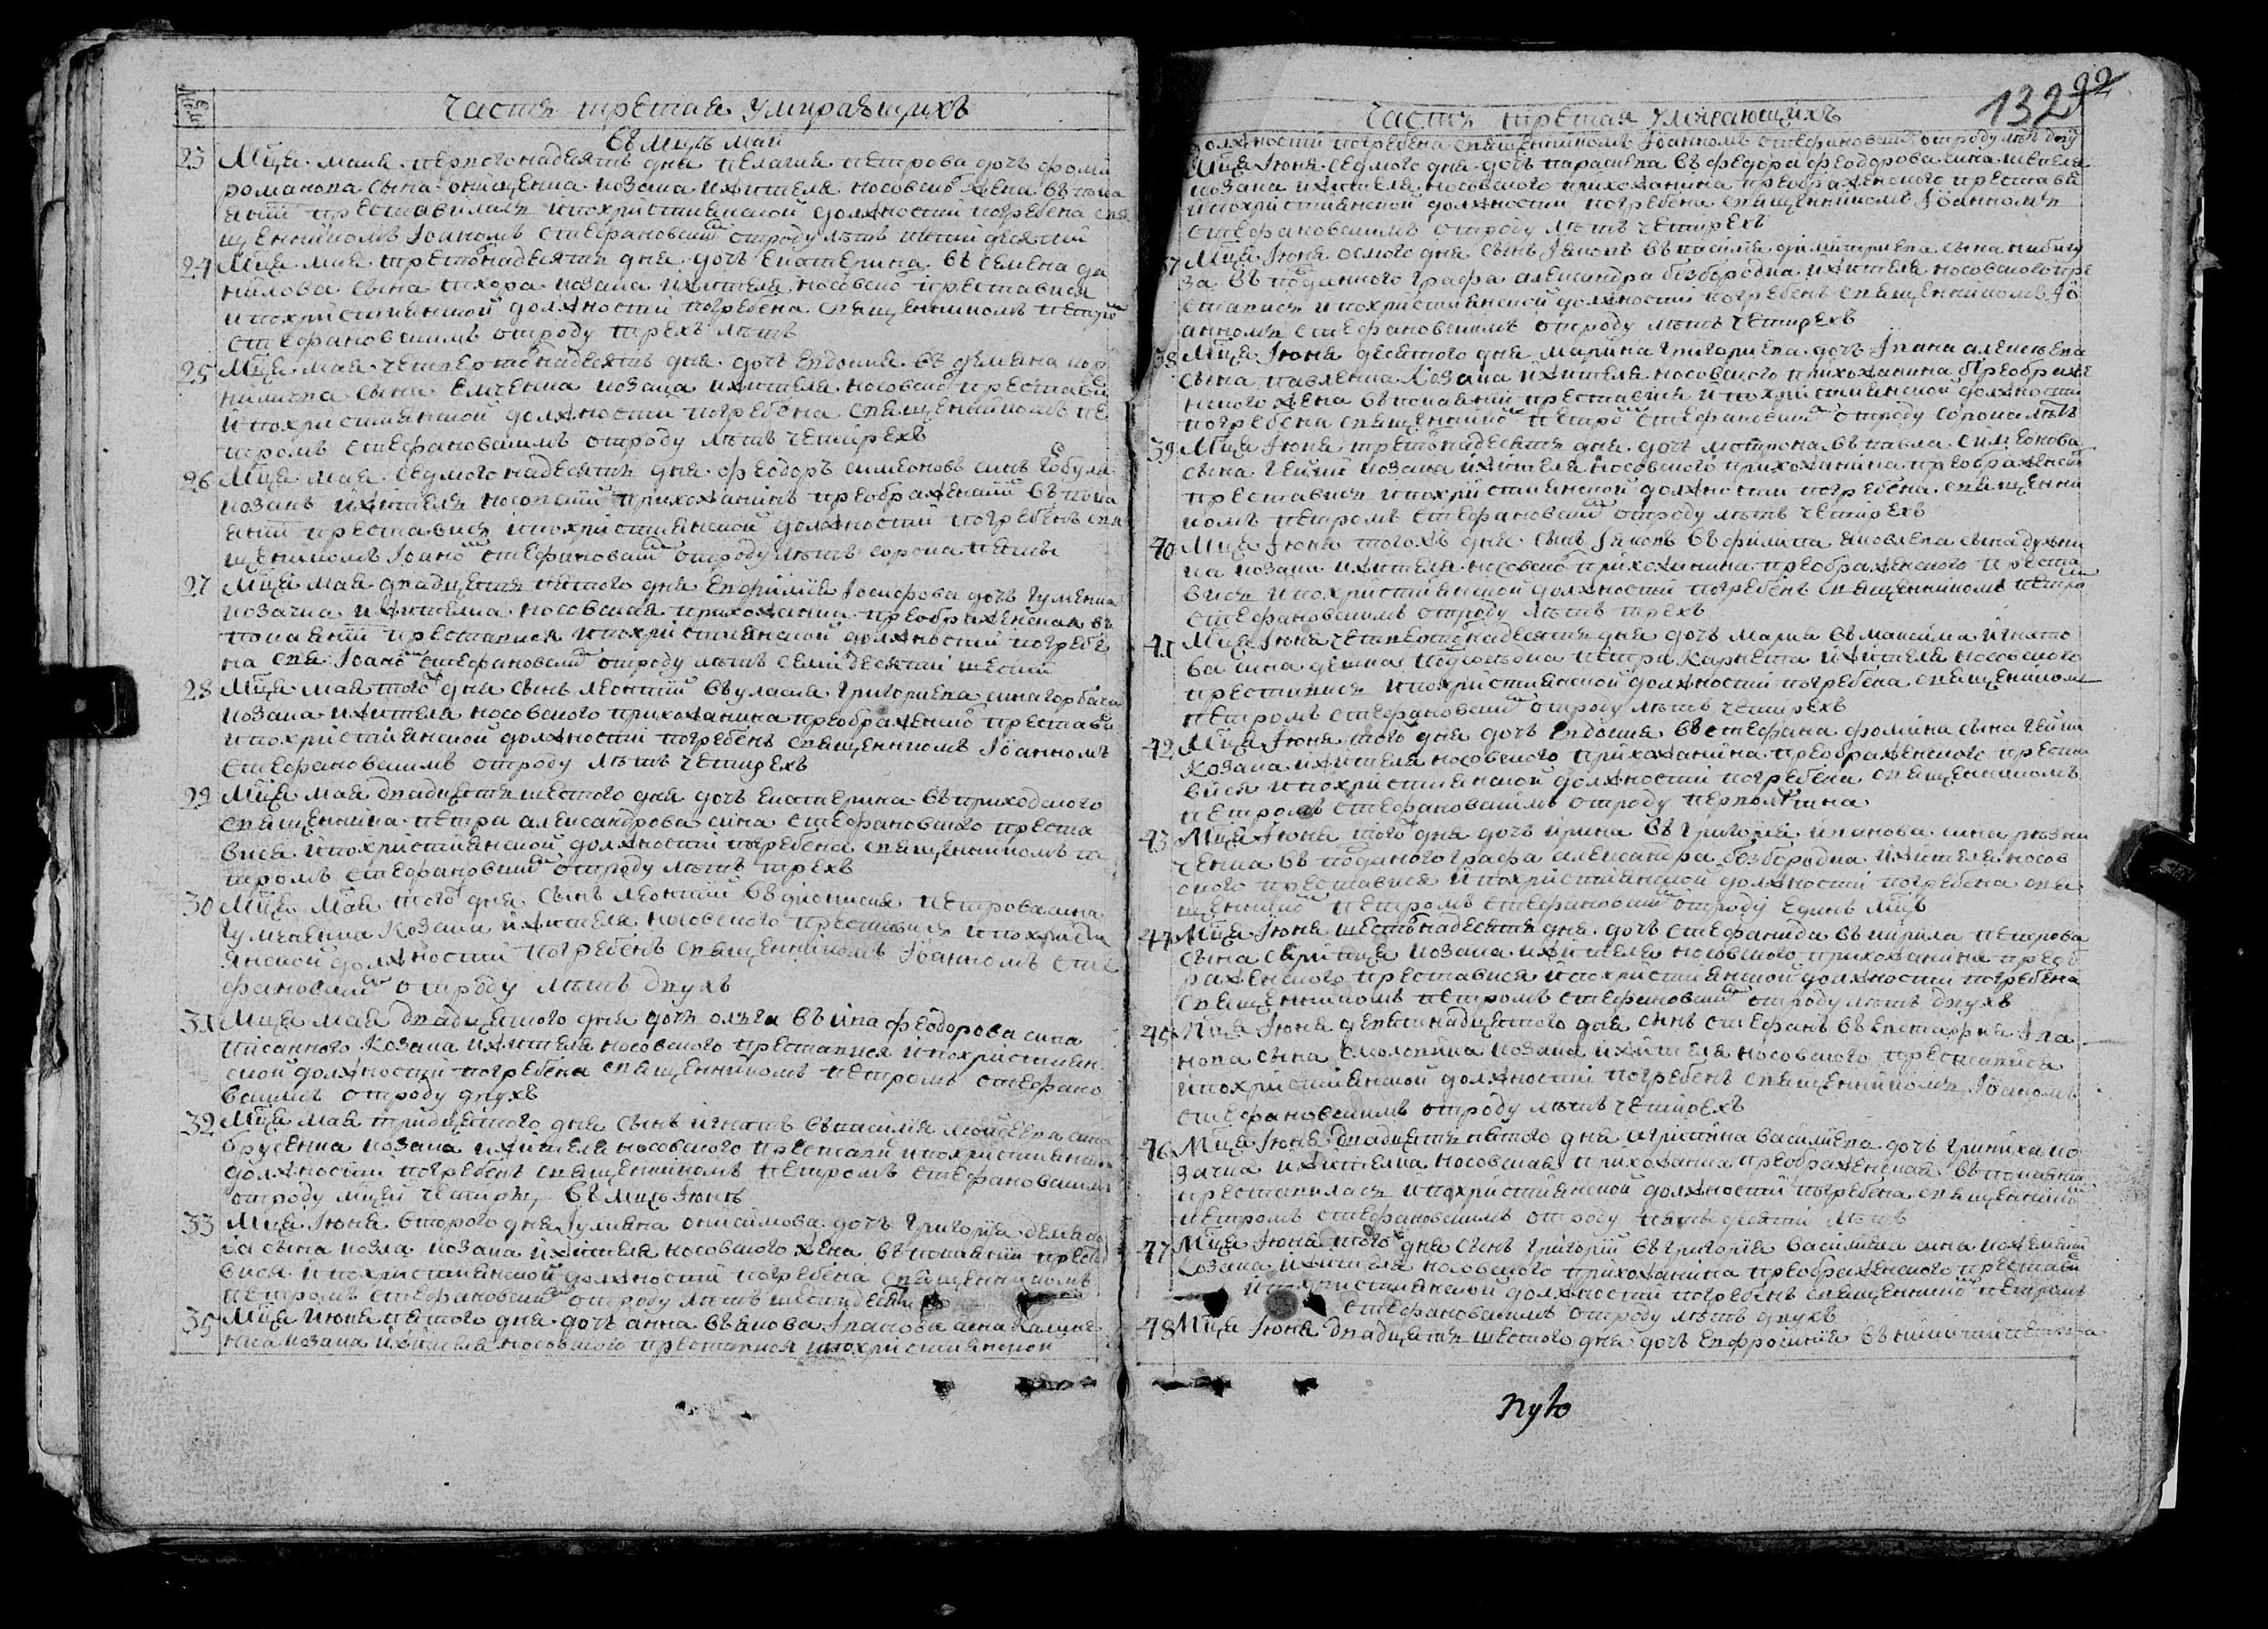 Часть третая умирающихъ
въ мцѣ маи
23 Мца мая первогонадесять дня пелагия петрова дочъ фоми
романова сына онищенка козака и жителя носовско жена въ пока
янiи преставилася и похристиянской должностiи погребена свя
щенникомъ Iоаномъ стефановским отроду лѣтъ пятидесяти
24 Мца мая третогонадесять дня дочъ екатерина въ семена да
нилова сына козака и жителя носовско преставися
и похристиянской должностiи погребена священникомъ петро
стефановскимъ отроду трехъ лѣтъ
25 Мца мая четвертогонадесять дня дочъ евдокия въ демяна кор
нилиева сына емченка козака и жителя носовско престави
и похристиянской должности погребена священникомъ пе
тромъ стефановскимъ отроду лѣтъ четирехъ
26 Мца мая седмогонадесять дня феодоръ симеоновъ синъ
козакъ и житель носовскiй прихожанинъ преображенскiй въ пока
янiи преставися и похристиянской должностiи погребенъ свя
щеникомъ Iоано стефановским отроду лѣтъ сорока пяти
27 Мца мая двадцать пятого дня евфимiя Iосифова дочъ гуменна
козачка и жителка носовская прихожанка преображенская въ
покаянiи преставися и похристиянской должностiи погребе
на свя Iоано стефановским отроду лѣтъ семидесяти шести
28 Мца мая того дня сынъ леонтiй въ уласия григориева сина горбача
козака и жителя носовского прихожанина преображенско престави
и похристиянской должностiи погребенъ священникомъ Iоанномъ
стефановскимъ отроду лѣтъ четирехъ
29 Мца мая двадцять шестого дня дочъ екатерина въ приходского
священника петра александрова сина стефановского преста
вися и похристиянской должностiи погребена священникомъ пе
тромъ стефановским отроду лѣтъ трехъ
30 Мца мая того дня сынъ леонтiй въ дионисия петрова сина
козака и жителя носовского преставися и похристи
янской должностiи погребенъ священникомъ Iоанномъ сте
фановским отроду лѣтъ двухъ
31 Мца мая двадцятого дня дочъ олга въ феодорова сина
писанного козака и жителя носовского преставися и похристиян
ской должностiи погребена священникомъ петромъ стефано
вскимъ отроду двухъ
32 Мца мая тридцятого дня сынъ игнатъ въ василiя моисеева сина
брусенка козака и жителя носовского престави и похристиянской
должностiи погребенъ священникомъ петромъ стефановскимъ
отроду мцей четири, въ мцѣ Iюнѣ
33 Мца Iюня второго дня Iулияна онисимова дочъ григория
сына козла козака и жителя носовского жена въ покаянiи преста
вися и похристиянской должностiи погребена священникомъ
петромъ стефановским отроду лѣтъ шестидесяти
35 Мца июня пятого дня дочъ анна въ якова Iванова сина
козака и жителя носовского преставися и похристиянской
132
22
Часть третая умирающихъ
должностiи погребена священникомъ Iоанномъ стефановским отроду лѣт двух
Мца Iюня седмого дня дочъ параскева въ федора феодорова сина
козака и жителя носовского прихожанина преображенского престави
и похристиянской должности погребена священникомъ Iоанномъ
стефановскимъ отроду лѣтъ четирехъ
37 Мца Iюня осмого дня сынъ Iаковъ въ василiя димитриева сына
въ подданного графа александра безбородка и жителя носовского пре
ставися и похристиянской должности погребенъ священникомъ Iо
анномъ стефановскимъ отроду лѣтъ четирехъ
38 Мца Iюня десятого дня марина григориева дочъ Iвана алексѣева
сына павленка козака и жителя носовского прихожанина преображе
нского жена въ покаянiи преставися и похристиянской должности
погребена священнико петро стефановским отроду сорока лѣтъ
39 Мца Iюня третогонадесять дня дочъ мотрона въ павла симеонова
сына козака и жителя носовского прихожанина преображенско
преставися и похристиянской должности погребена священни
комъ петромъ стефановским отроду лѣтъ четирехъ
40 Мца Iюня тогожъ дня сынъ Iаковъ въ филипа яковлева сына
козака и жителя носовско прихожанина преображенского преста
вися и похристиянской должностiи погребенъ священникомъ петро
стефановскимъ отроду лѣтъ трехъ
41 Мца Iюня четвертогонадесять дня дочъ мария въ максима игнато
ва сина петра карнета и жителя носовского
преставися и похристиянской должностiи погребена священником
петромъ стефановским отроду лѣтъ четирехъ
42 Мца Iюня того дня дочъ евдокия въ стефана фомина сына
козака и жителя носовского прихожанина преображенского преста
вися и похристиянской должностiи погребена священникомъ
петромъ стефановскимъ отроду
43 Мца Iюня того дня дочъ ирина въ григорiя иванова сина
въ подданого графа александра безбородка и жителя носов
ского преставися и похристиянской должностiи погребена свя
щеннико петромъ стефановским отроду единъ мцъ
44 Мца Iюня шестогонадесять дня дочъ стефанида въ кирила петрова
сына козака и жителя носовского прихожанина преоб
раженского преставися и похристиянской должностiи погребена
священникомъ петромъ стефановским отроду лѣтъ двухъ
45 Мца Iюня девятнадцятого дня синъ стефанъ въ евстафия Iва
нова сына козака и жителя носовского преставися
и похристиянской должностiи погребенъ священникомъ Iоаномъ
стефановскимъ отроду лѣтъ четирехъ
46 Мца Iюня двадцять пятого дня агрипина василиева дочъ гриниха ко
зачка и жителка носовская прихожанка преображенская въ покаянiи
преставилася и похристиянской должностiи погребена священнико
петромъ стефановскимъ отроду пятьдесяти лѣтъ
47 Мца Iюня того дня синъ григорiй въ григорiя василиева сина
козака и жителя носовского прихожанина преображенского престави
и похристиянской должностiи погребенъ священнико петромъ
стефановскимъ отроду лѣтъ двухъ
48 Мца Iюня двадцять шестого дня дочъ евфросинiя въ